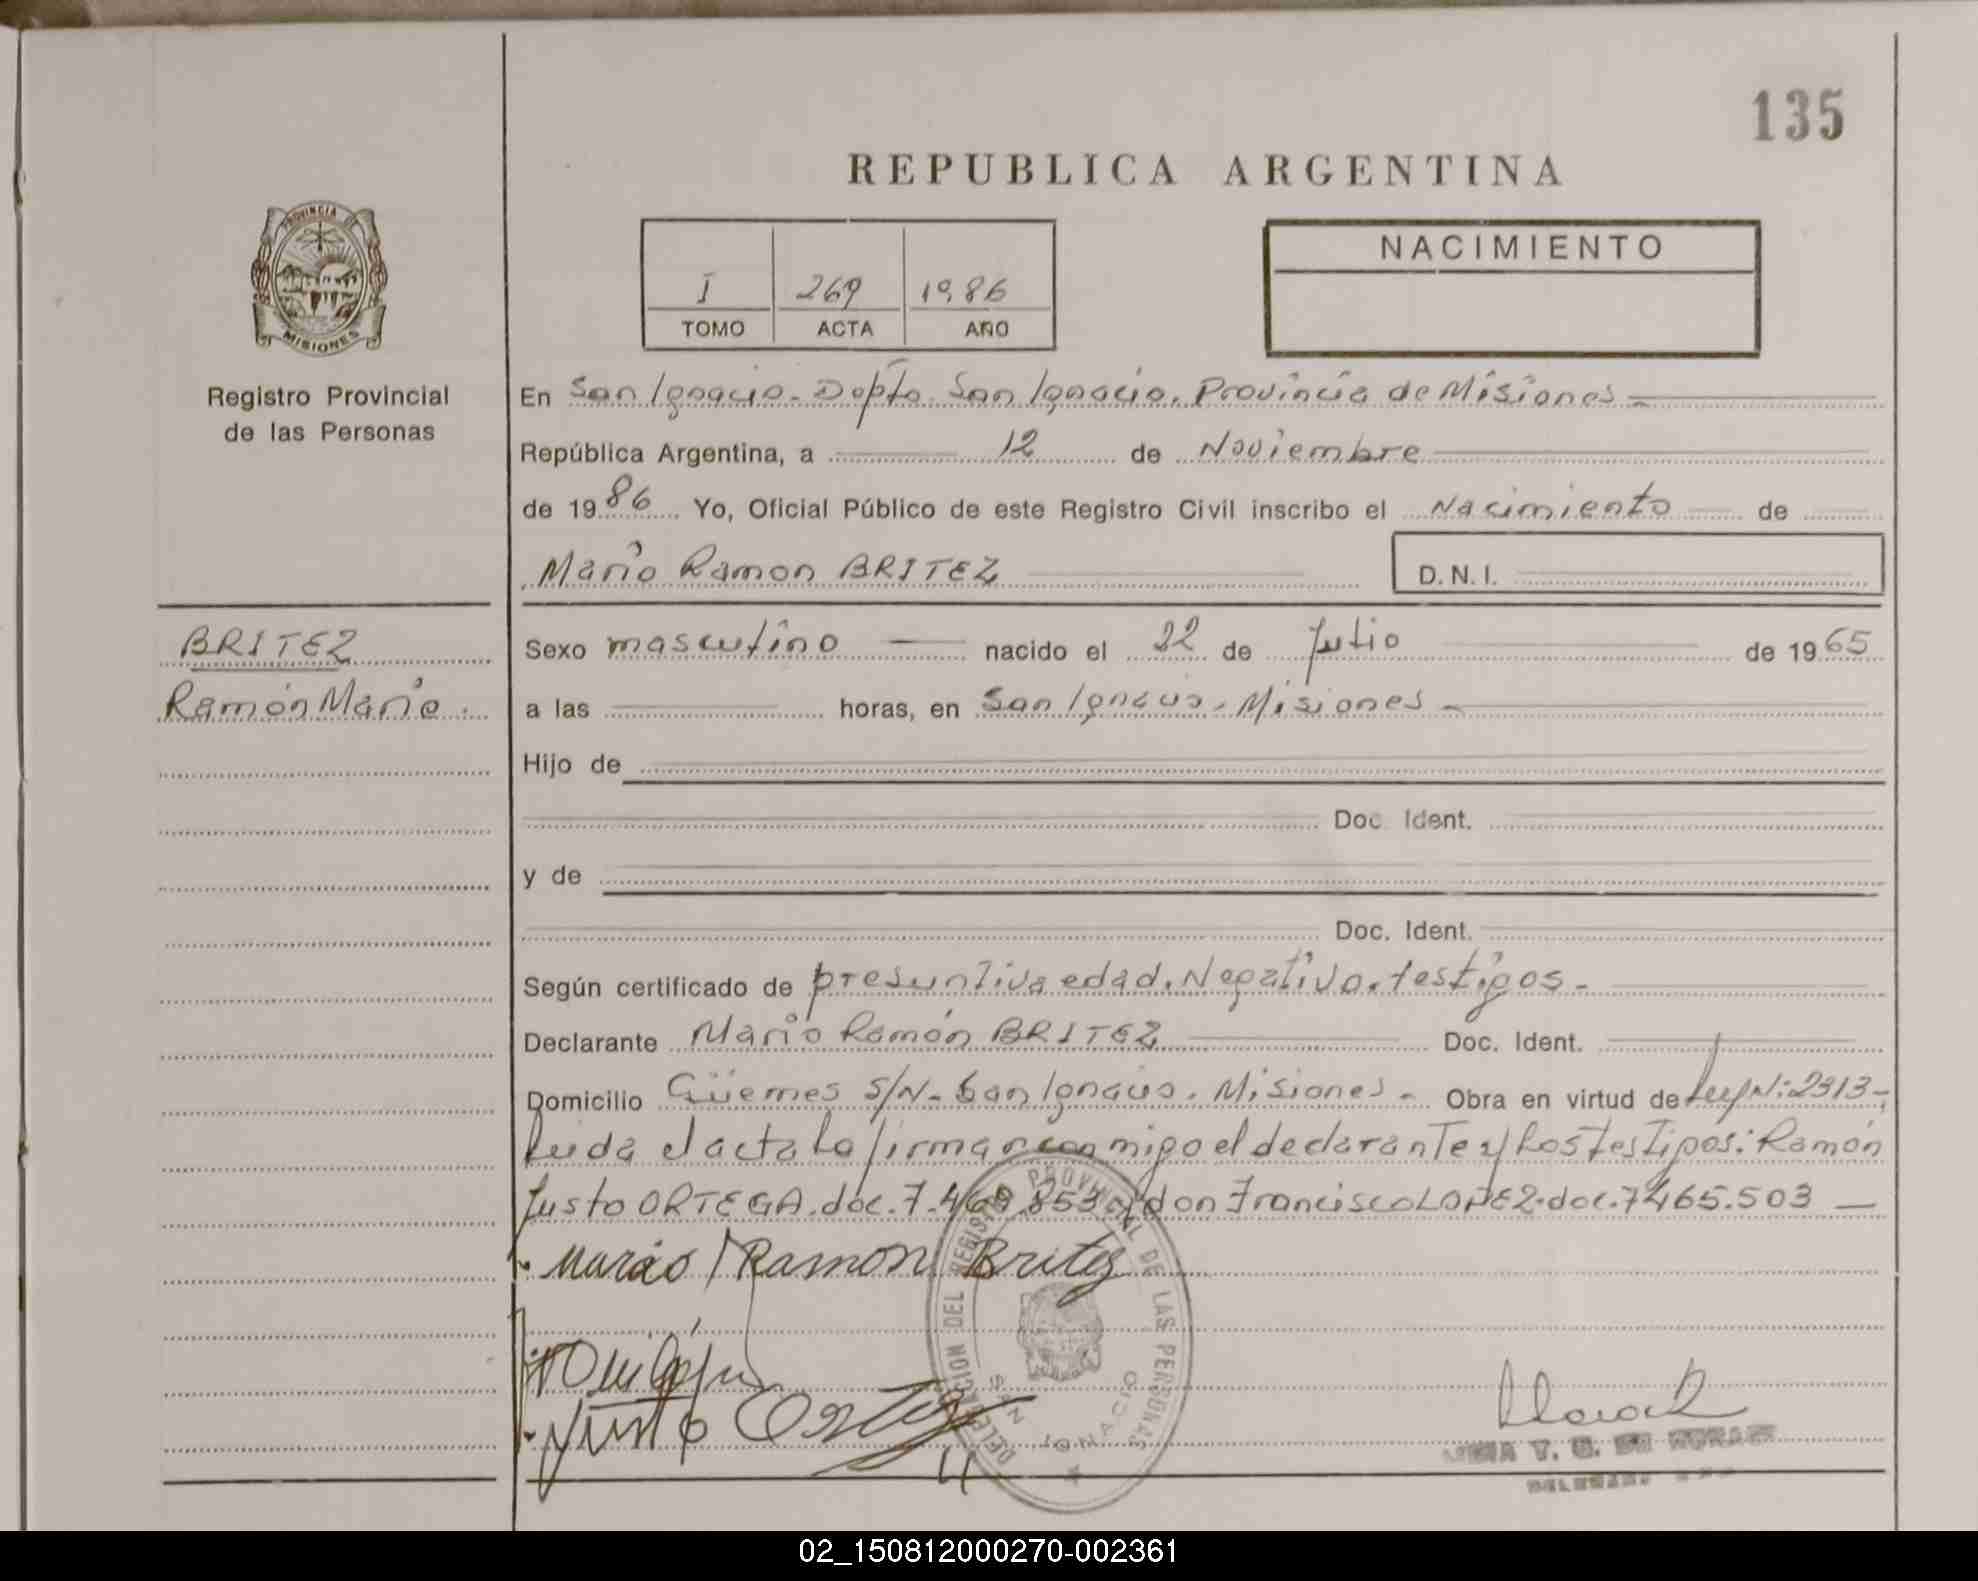 135
REPUBLICA ARGENTINA
PROVINCIA DE
MISIONES
Registro Provincial
de las Personas
I 269 1986
TOMO ACTA AÑO
NACIMIENTO
En San Ignacio - Dopto. San Ignacio. Provincia de Misiones -
República Argentina, a 12 de Noviembre
de 1986 Yo, Oficial Público de este Registro Civil inscribo el Nacimiento de
Mario Ramon BRITEZ D.N.I.
BRITEZ
Ramón Mario.
Sexo masculino nacido el 22 de Julio de 1965
a las horas, en San Ignacio. Misiones -
Hijo de
Doc. Ident.
y de
Doc. Ident.
Según certificado de presuntiva edad. Negativo. testigos -
Declarante Mario Ramón BRITEZ Doc. Ident.
Domicilio Güemes S/N - San Ignacio. Misiones - Obra en virtud de Ley N: 2313 -
Leida el acta la firman conmigo el declarante y Los testigos: Ramón
Justo ORTEGA. doc. 7.469.853 y don Francisco LOPEZ. doc. 7465.503 —
Mario Ramon Britez
Justo Ortega
DELEGACION DEL REGISTRO PROVINCIAL DE LAS PERSONAS
SAN IGNACIO
02_150812000270-002361